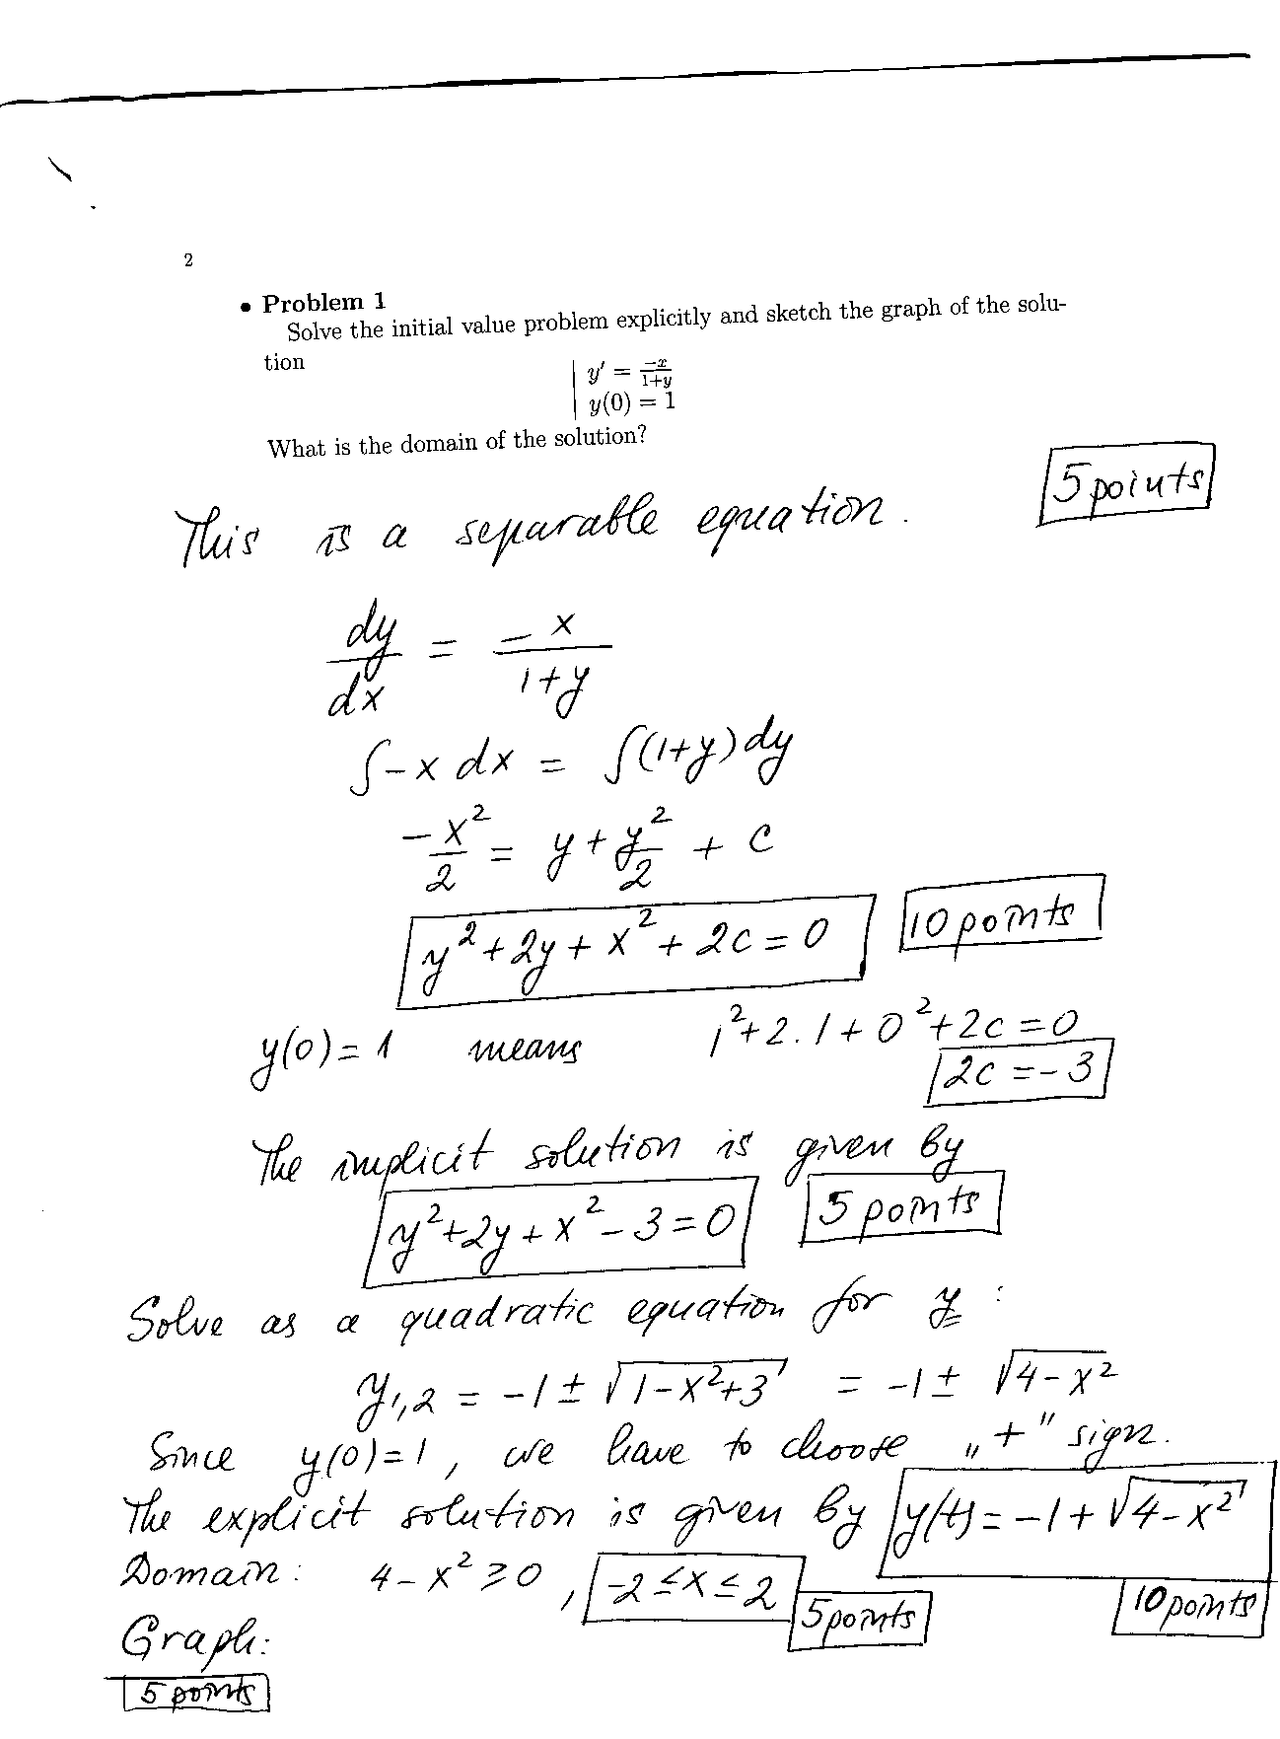 2
• Problem 1
Solve the initial value problem explicitly and sketch the graph of the solu-
tion
y' = -x/(1+y)
y(0) = 1
What is the domain of the solution?
5 points
This is a separable equation.
dy/dx = -x/(1+y)
∫-x dx = ∫(1+y)dy
-x²/2 = y + y²/2 + C
y²+2y+x²+2c=0 10 points
y(0)=1 means 1²+2.1+0²+2c=0
2c=-3
The implicit solution is given by
y²+2y+x²-3=0 5 points
Solve as a quadratic equation for y:
y1,2 = -1±√(1-x²+3) = -1±√(4-x²)
Since y(0)=1, we have to choose „+" sign.
The explicit solution is given by y(t)=-1+√(4-x²)
Domain: 4-x²≥0, -2≤x≤2
5 points 10 points
Graph:
5 points